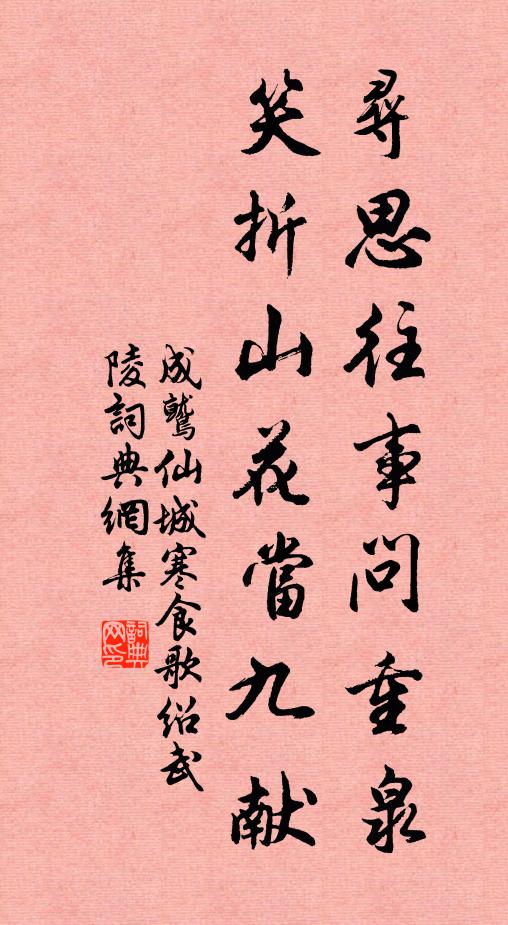 尋思往事問重泉
笑折山花當九献
成鷲仙城寒食歌紹武
陵詞典網集
詞典
网印